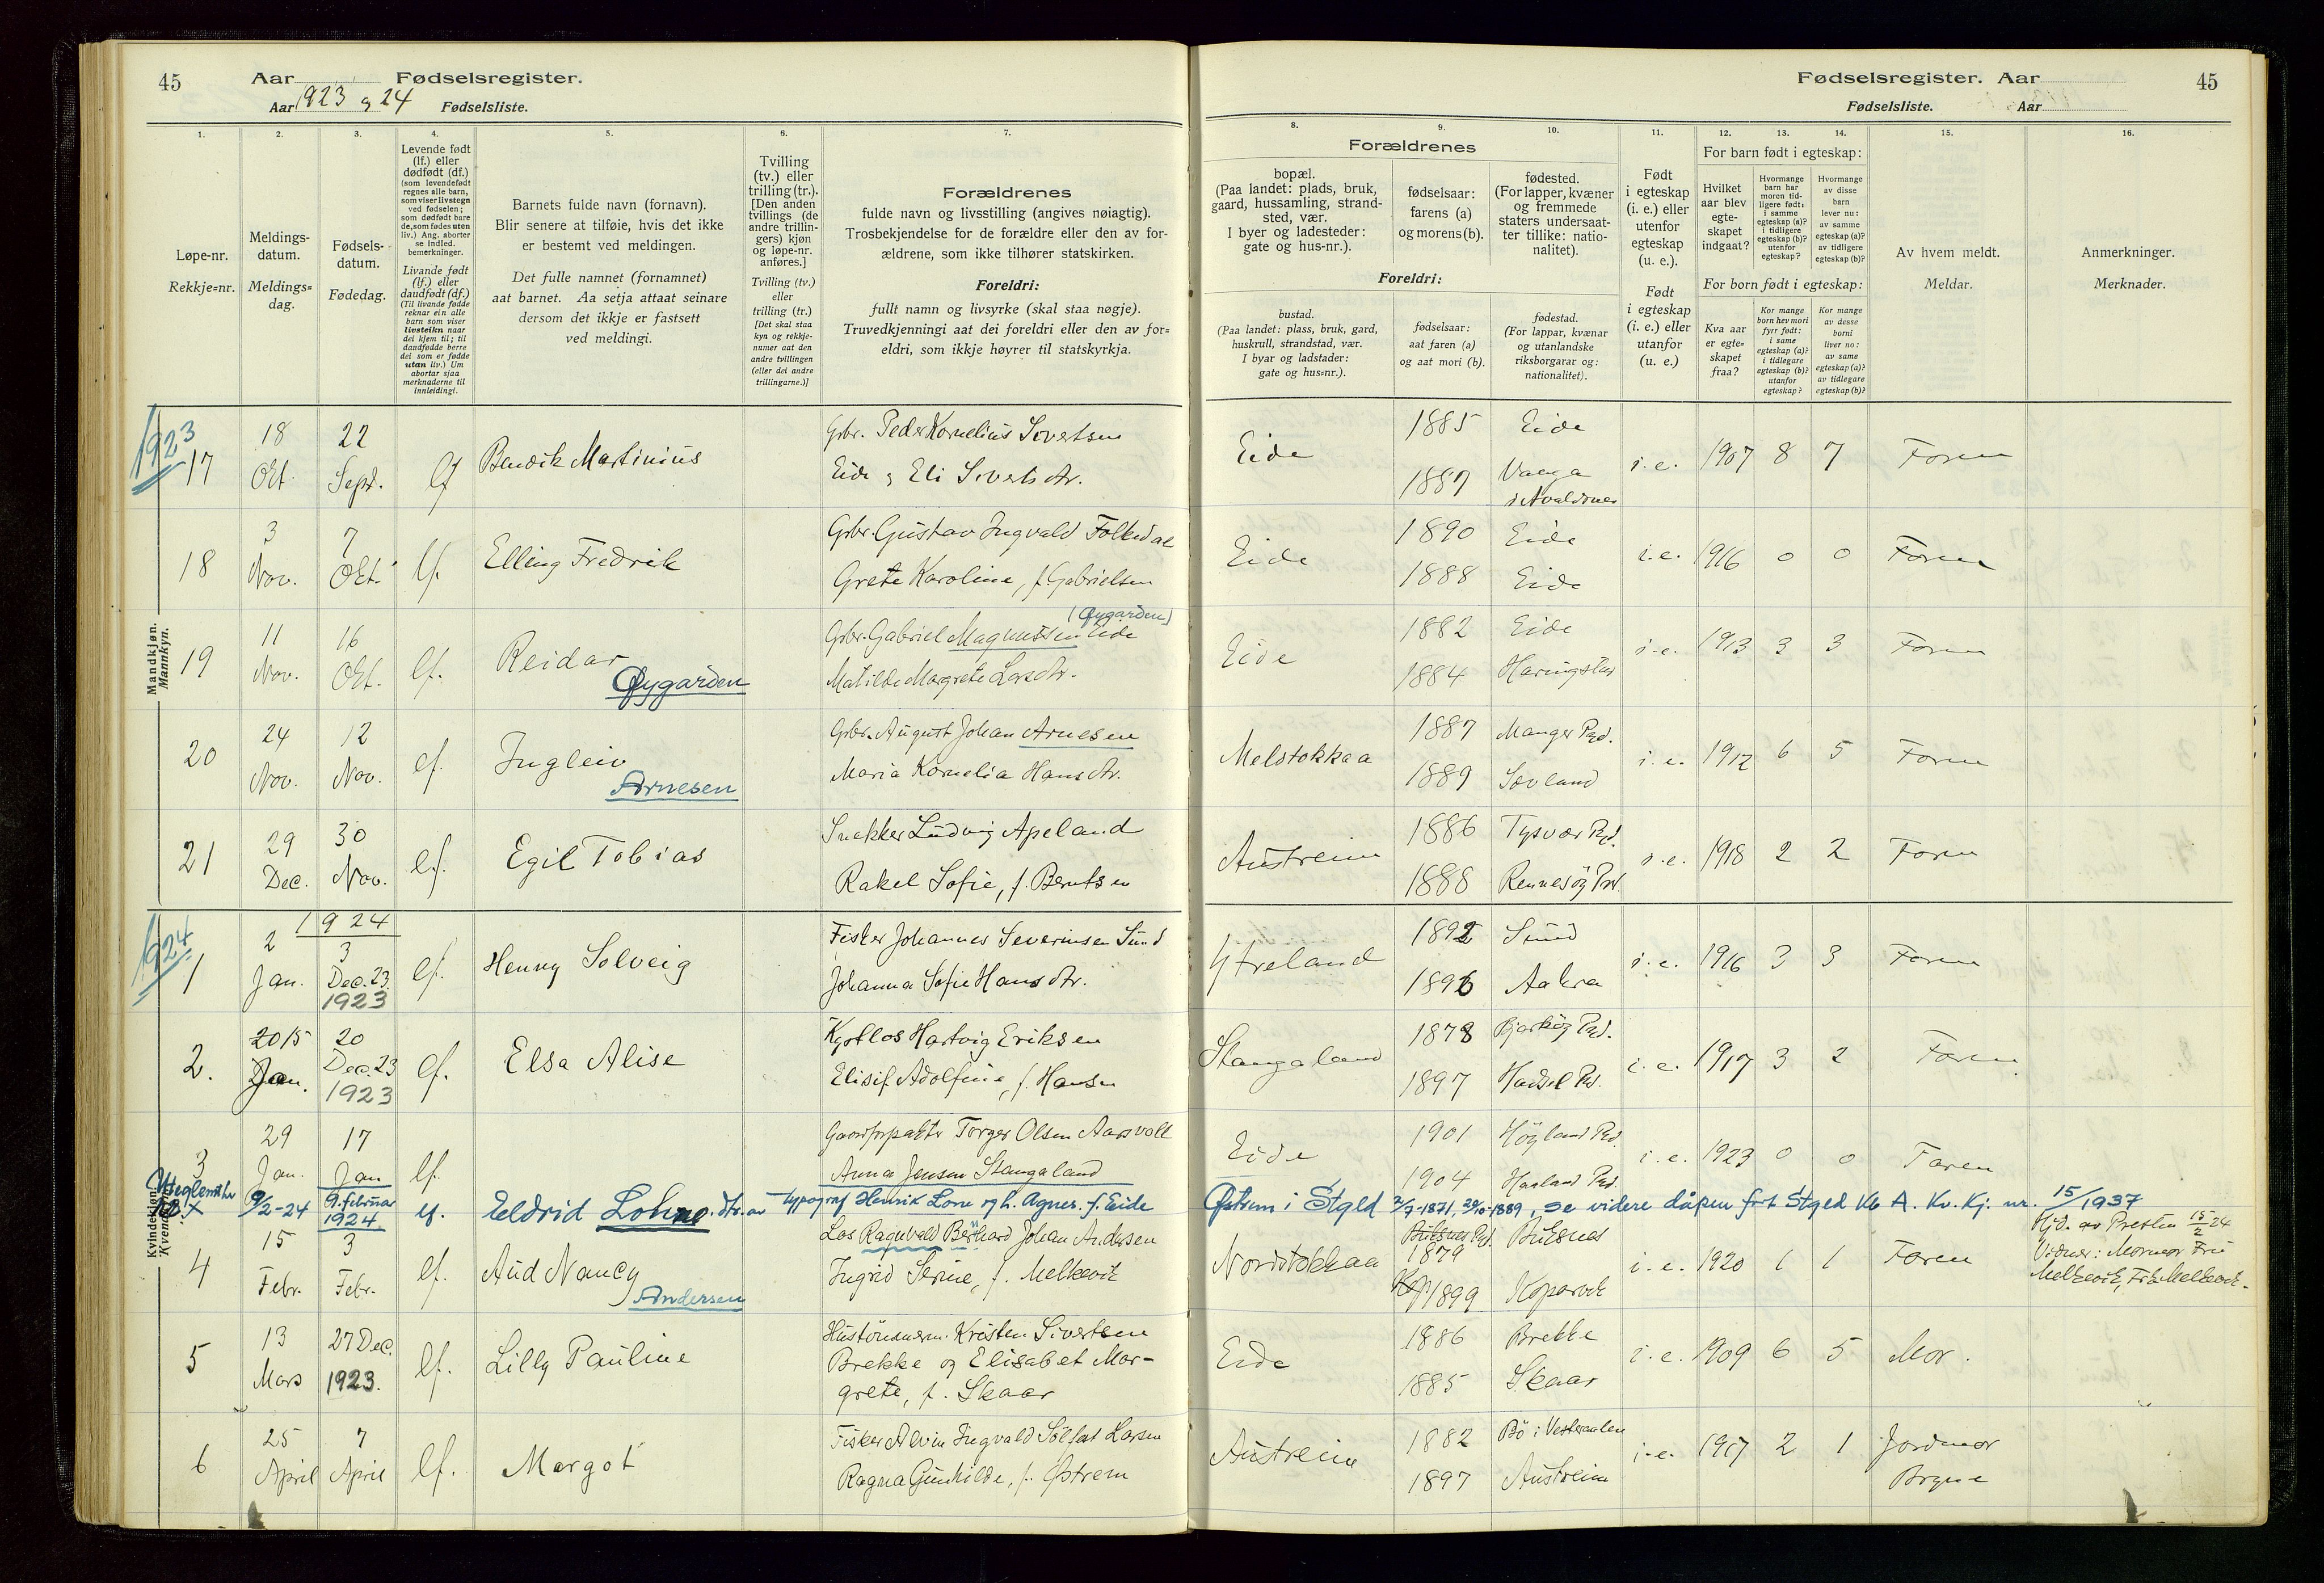 45
Aar Fødselsregister.
Aar 1923 og 24 Fødselsliste.
Fødselsregister. Aar
Fødselsliste. Aar
45
1. 2. 3. 4. 5. 6. 7.
Løpe-nr.
Rekkje-nr.
Meldings-
datum.
Meldings-
dag.
Fødsels-
datum.
Fødedag.
Levende født
(lf.) eller
dødfødt (df.)
(som levendefødt
regnes alle barn,
som viser livstegn
ved fødselen;
som dødfødt bare
de, som fødes uten
liv.) Ang. aborter
se indled.
bemerkninger.
Livande født
(lf.) eller
daudfødt (df.)
(Til livande fødde
reknar ein alle
barn som viser
livsteikn naar
dei kjem til; til
daudfødde berre
dei som er fødde
utan liv.) Um
abortar sjaa
merknaderne til
innleidingi.
Barnets fulde navn (fornavn).
Blir senere at tilføie, hvis det ikke
er bestemt ved meldingen.
Det fulle namnet (fornamnet)
aat barnet. Aa setja attaat seinare
dersom det ikkje er fastsett
ved meldingi.
Tvilling
(tv.) eller
trilling (tr.).
[Den anden
tvillings (de
andre trillin-
gers) kjøn
og løpe-nr.
anføres.]
Tvilling (tv.)
eller
trilling (tr.)
[Det skal staa
kyn og rekkje-
numer aat den
andre tvillingen
(eller dei andre
trillingarne.)]
Forældrenes
fulde navn og livsstilling (angives nøiagtig).
Trosbekjendelse for de forældre eller den av for-
ældrene, som ikke tilhører statskirken.
Foreldri:
fullt namn og livsyrke (skal staa nøgje).
Truvedkjenningi aat dei foreldri eller den av for-
eldri, som ikkje høyrer til statskyrkja.
8. 9. 10. 11. 12. 13. 14. 15. 16.
Forældrenes
bopæl.
(Paa landet: plads, bruk,
gaard, hussamling, strand-
sted, vær.
I byer og ladesteder:
gate og hus-nr.).
fødselsaar:
farens (a)
og morens (b).
fødested.
(For lapper, kvæner
og fremmede
staters undersaat-
ter tillike: natio-
nalitet).
Foreldri:
bustad.
(Paa landet: plass, bruk, gard,
huskrull, strandstad, vær.
I byar og ladstader:
gate og hus-nr.).
fødselsaar:
aat faren (a)
og aat mori (b).
fødestad.
(For lappar, kvænar
og utanlandske
riksborgarar og:
nationalitet).
Født
i egteskap
(i. e.) eller
utenfor
egteskap
(u. e.).
Født
i egteskap
(i. e.) eller
utanfor
(u. e.)
For barn født i egteskap:
Hvilket
aar blev
egte-
skapet
indgaat?
Hvormange
barn har
moren tid-
ligere født:
i samme
egteskap (a)?
i tidligere
egteskap (b)?
utenfor
egteskap?
Hvormange
av disse
barn
lever nu:
av samme
egteskap (a)?
av tidligere
egteskap (b)?
For born født i egteskap:
Kva aar
er egte-
skapet
fraa?
Kor mange
born hev mori
fyrr født:
i same
egteskap (a)?
i tidlegare
egteskap (b)?
utanfor
egteskap?
Kor mange
av desse
borni
liver no:
av same
egteskap (a)?
av tidlegare
egteskap (b)?
Av hvem meldt.
Meldar.
Anmerkninger.
Merknader.
Mandkjøn.
Mannkyn.
1923
17 18 Okt. 22 Sept. lf Bendik Martinius
Grbr. Peder Kornelius Sivertsen
Eide og Eli Siverts dtr.
Eide 1885 Eide
1887 Vaaga i Avaldsnes
i.e. 1907 8 7 Faren
18 3 Nov. 7 Okt. lf. Elling Fredrik
Grbr. Gustav Ingvald Folkedal
Grete Karoline, f. Gabrielsen
Eide 1890 Eide
1888 Eide
i.e. 1916 0 0 Faren
19 11 Nov. 16 Okt. lf. Reidar
Øygarden
(Øygarden)
Grbr. Gabriel Magnussen Eide
Matilde Margrete Larsdtr.
Eide 1882 Eide
1884 Haringstad
i.e. 1913 3 3 Faren
20 24 Nov. 12 Nov. lf. Ingleiv
Arnesen
Grbr. August Johan Arnesen
Maria Kornelia Hansdtr.
Melstokkaa 1887 Manger Pgd.
1889 Sævland
i.e. 1912 6 5 Faren
21 29 Dec. 30 Nov. lf. Egil Tobias
Snekker Ludvig Apeland
Rakel Sofie, f. Berntsen
Austreim 1886 Tysvær Pgd.
1888 Rennesøy Pgd.
i.e. 1918 2 2 Faren
1924
1924
1 2 Jan. 3 Dec. 23 1923 lf. Henny Solveig
Fisker Johannes Severinsen Sund
Johanna Sofie Hansdtr.
Ytreland 1892 Sund
1896 Aakra
i.e. 1916 3 3 Faren
2. 20 15 Jan. 20 Dec. 23 1923 lf. Elsa Alise
Kystlos Hartvig Eriksen
Elisif Adolfine, f. Hansen
Stangaland 1878 Bjarkøy Pgd.
1897 Hadsel Pgd.
i.e. 1917 3 2 Faren
3 29 Jan. 17 Jan lf.
Gaardforpakter Torger Olsen Aarsvoll
Anna Jensen Stangaland
Eide 1901 Høyland Pgd.
1904 Haaland Pgd.
i.e. 1923 0 0 Faren
9/2-24 9. februar 1924 lf. Eldrid Lohne dtr. av typograf Henrik Lone og h. Agnes f. Eide
Østrem i Stgld 2/7-1871, 1889, se videre dåpen frt Stgld Kb A. Kv. Kj. nr. 15/1937
Kvindekjøn.
4 15 Febr. 3 Febr. lf. Aud Nancy
Andersen
Los Ragnvald Bernhard Johan Andersen
Ingrid Serine, f. Melkevik
Nordstokkaa Buksnes Pgd. 1879 Buksnes
1899 Kopervik
i.e. 1920 1 1 Faren
Hjd. av Presten 15/2 24
Vidner: Mormor Fru
Melkevik, Frk. Melkevik.
5 13 Mars 27 Dec. 1923. lf. Lilly Pauline
Hustømmerm. Kristen Sivertsen
Brekke og Elisabet Mar-
grete, f. Skaar
Eide 1886 Brekke
1885 Skaar
i.e. 1909 6 5 Mor.
6 25 April 7 April lf. Margot
Fisker Alvin Ingvald Solfat Larsen
Ragna Gunhilde, f. Østrem
Austreim 1882 Bø i Vesteraalen
1897 Austreim
i.e. 1917 2 1 Jordmor
Bryne